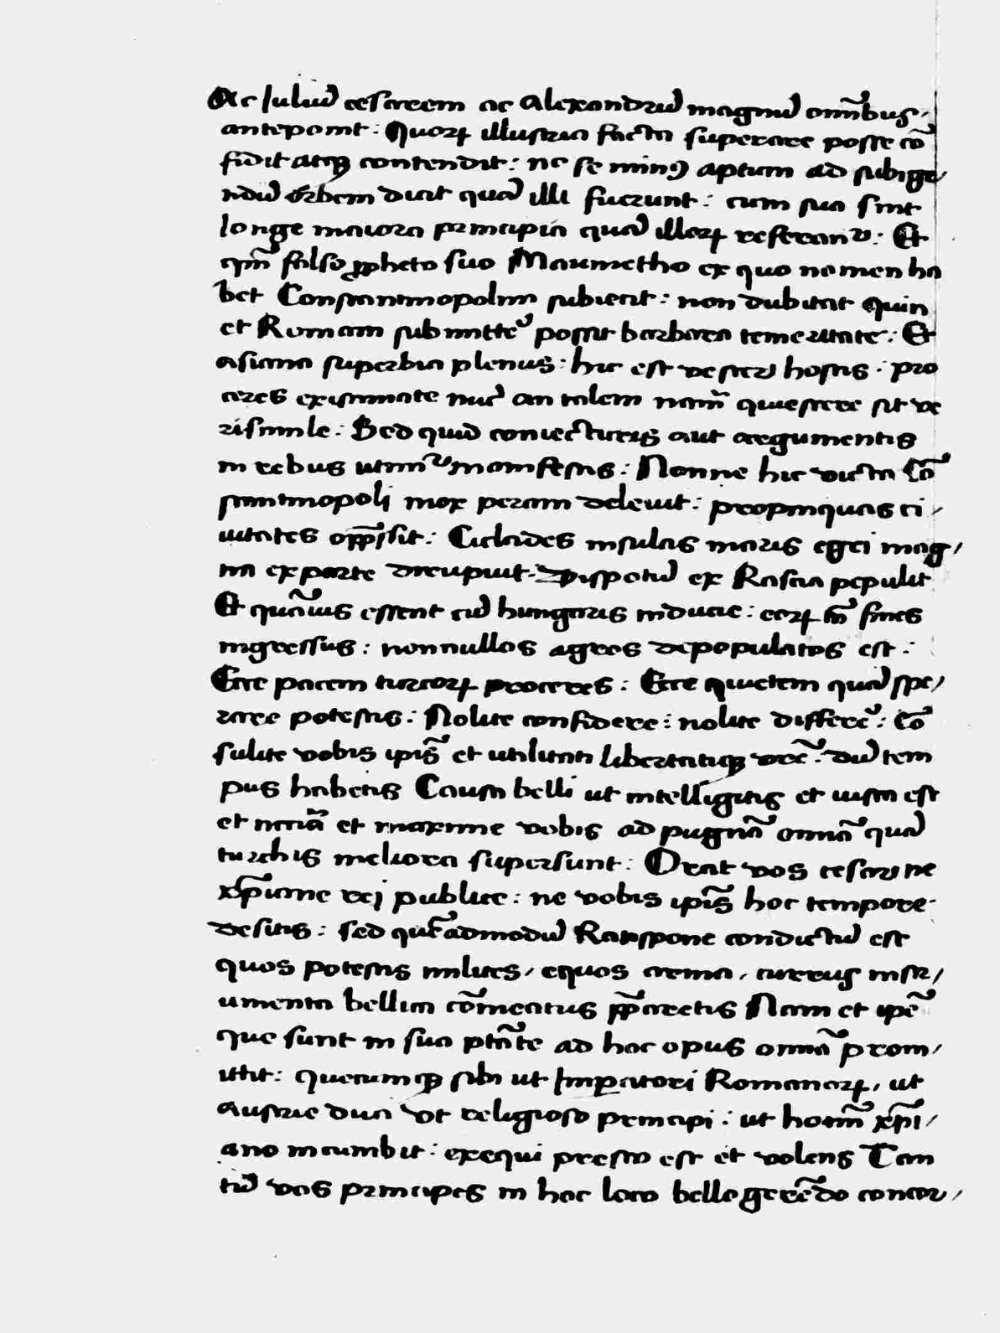 Ac Juliū cesarem ac Alexandrū magnū om̄ibus /
anteponit : Quorꝝ illustria facta superare posse cō
fidit atqꝫ contendit : nec se minꝰ aptum ad subige /
ndū Orbem ducit quā illi fuerunt : cum sua sint
longe maiora principia quā illorꝝ referant᷑ : Et
qm̄ falso ꝓpheto suo Maumetho ex quo nomen ha
bet Constantinopolim subiecit : non dubitat quin
et Romam submittẽ possit barbara temeritate : Et
asiana superbia plenus : hic est vester hostis · pro
ceres existimate nūc an talem nam̄ quiescere sit ve
risimile : Sed quid coniecturis aut argumentis
in rebus utimur manifestis : Nonne hic victa Cō
stantinopoli mox peram deleuit : propinquas ci /
uitates opp̄ssit : Ciclades insulas maris egei mag /
na ex parte diripuit · Dispotū ex Rascia pepulit
Et quāuis essent cū hungaris inducie : eorꝝ tn̄ fines
ingressus : nonnullos agros depopulatos est :
Ecce pacem turcorꝝ proceres : Ecce quietem quā spe /
rare potestis : Nolite confidere : nolite differrẽ : Cō
sulite vobis ip̄is et utilitati libertatiqꝫ vr̄e : dū tem
pus habetis Causa belli ut intelligitis et iusta est
et nccīa et maxime vobis ad pugnā omnia quā
turchis meliora supersunt : Orat vos cesar ne
xp̄iane rei publice : ne vobis ip̄is hoc tempore
desitis : sed quēadmodū Ratispone condictū est
quos potestis milites / equos arma / currus instr /
umenta bellica cōmeatus p̄paretis Nam et ip̄e
que sunt in sua ptāte ad hoc opus omnia prom /
ittit : quecumqꝫ sibi ut Imperatori Romanorꝝ / ut
austrie duci ut religioso principi : ut homī xp̄i /
ano incumbit : exequi presto est et volens Tan
tū vos principes in hoc loco bello gerēdo concor /